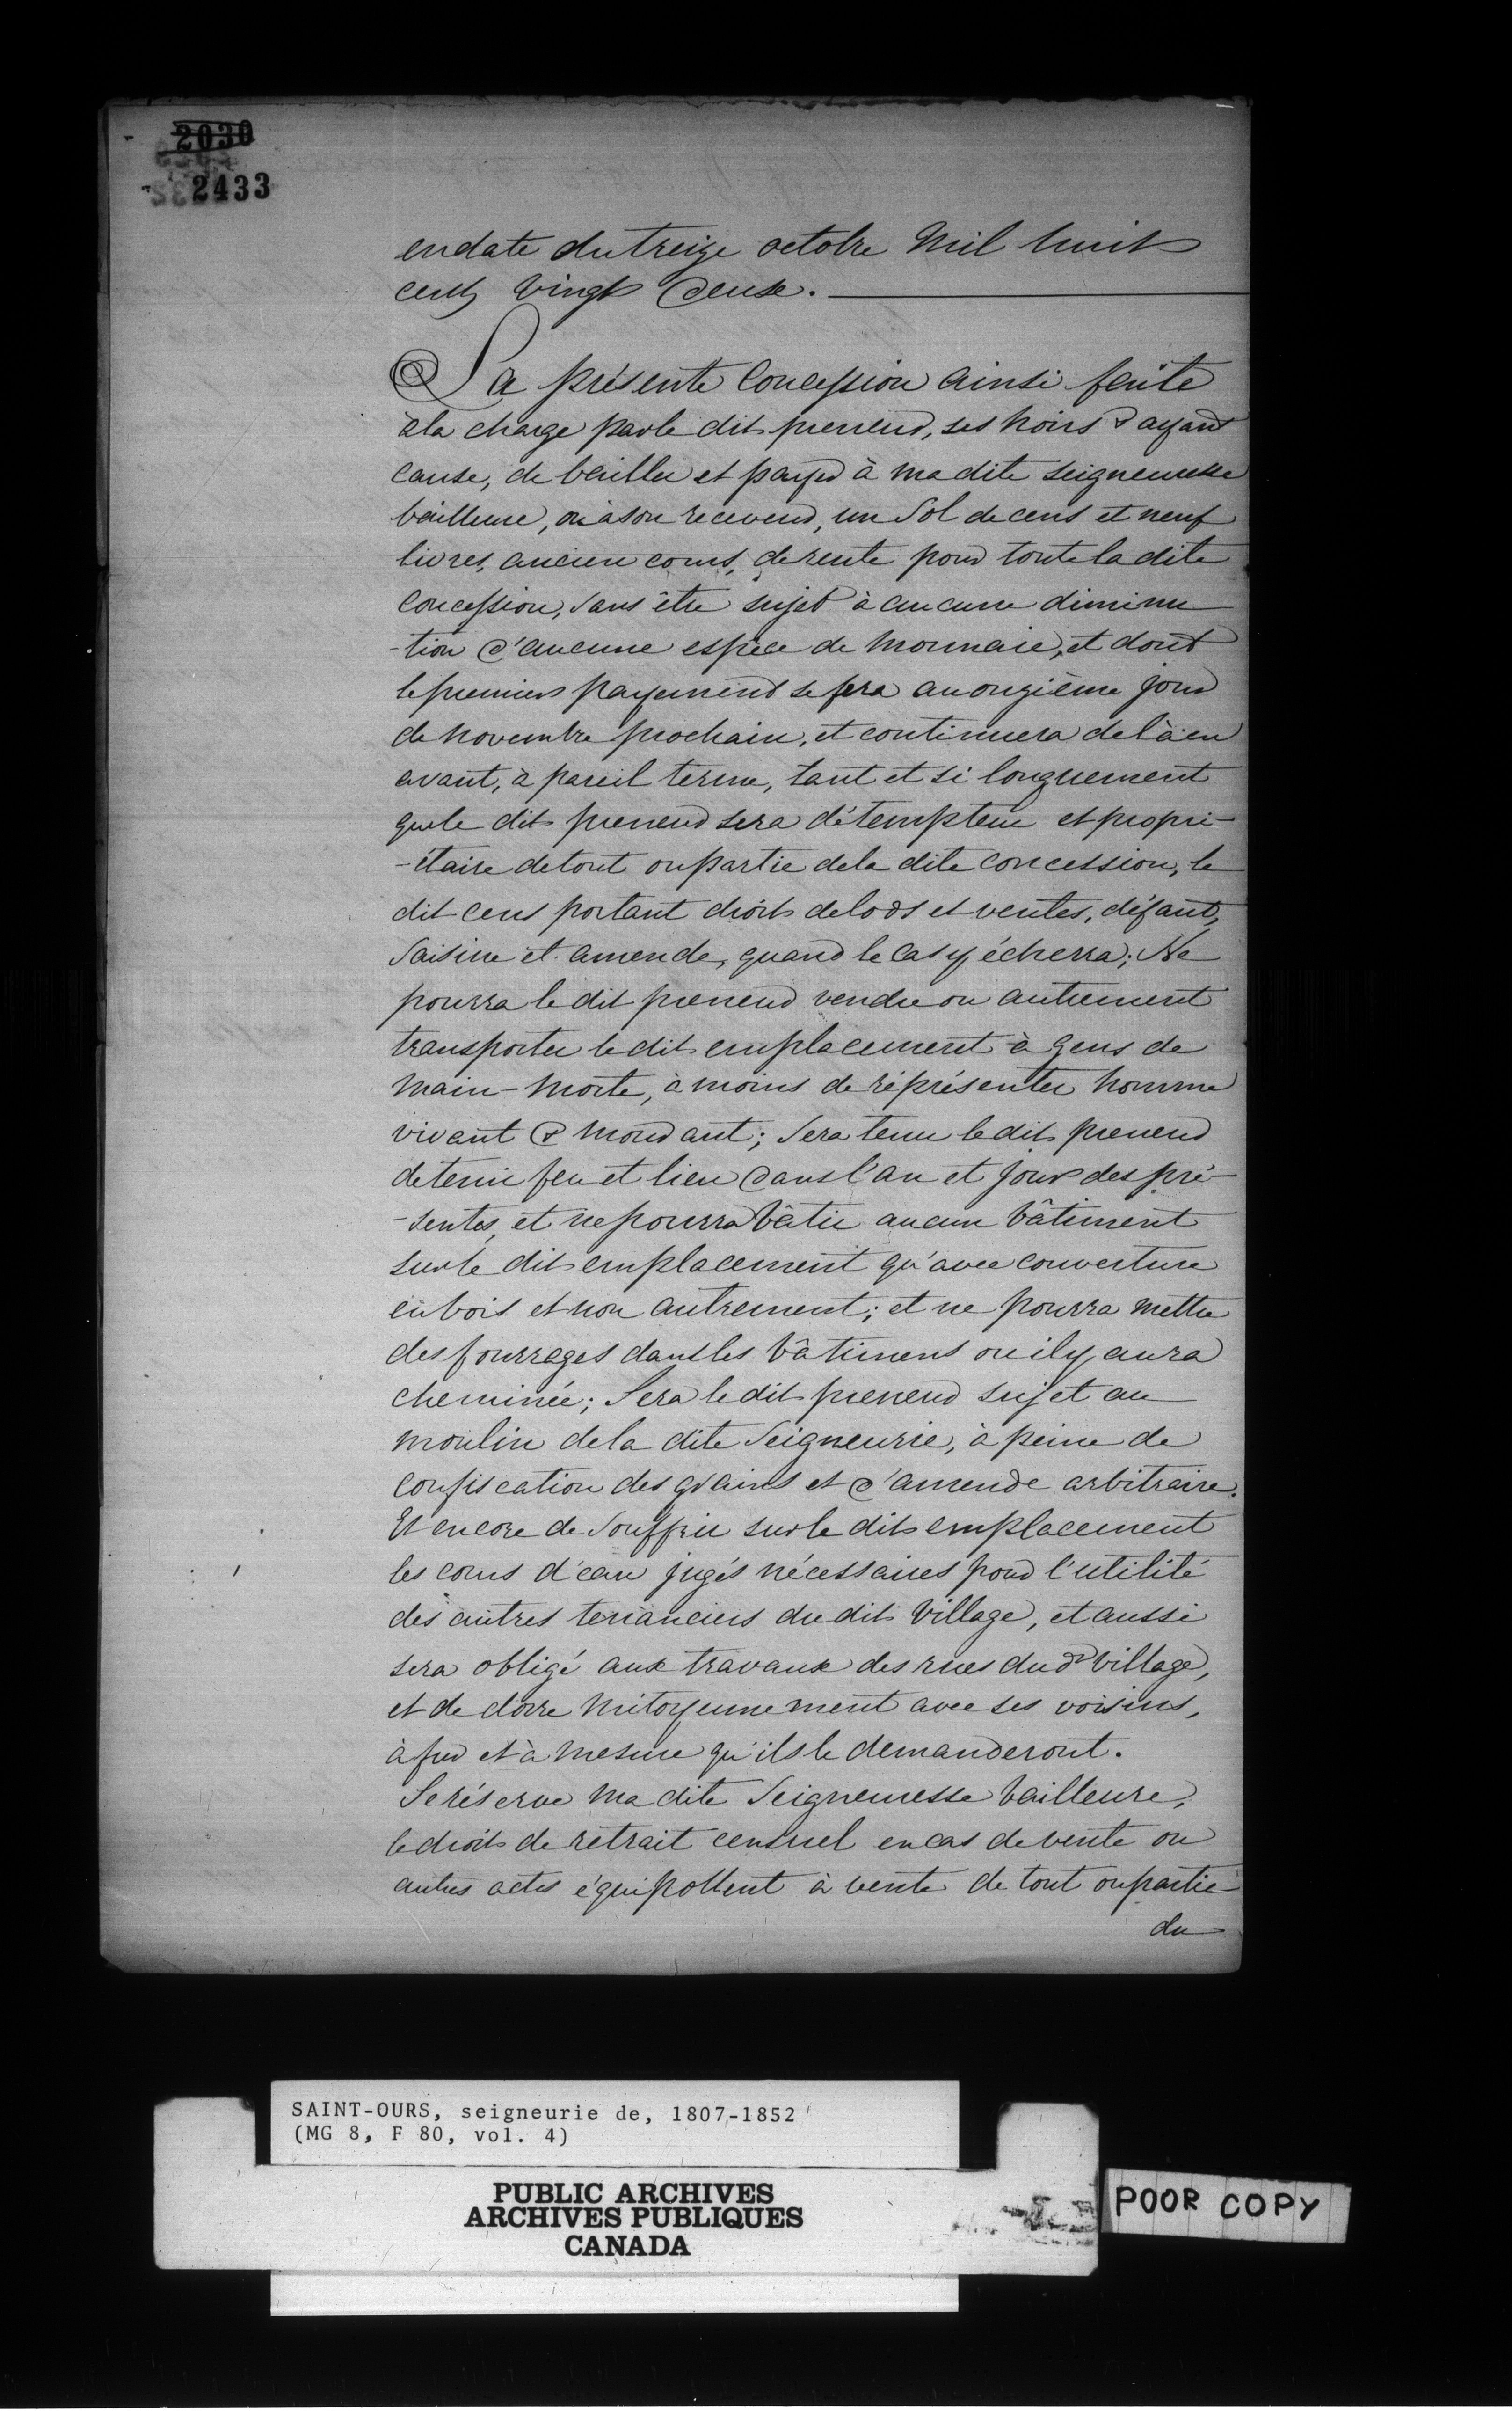 2030
2433
en date du treize octobre Mil huit
cents vingt deux.
La présente Concession ainsi faite
à la charge par le dit preneur, ses hoirs & ayant
cause, de bailler et payer à ma dite seigneuresse
bailleure, ou à son receveur, un Sol de cens et neuf
livres, ancien cours, de rente pour toute la dite
Concession, sans être sujet à aucune diminu-
-tion d'aucune espèce de Monnaie, et dont
le premier payement se fera au onzième jour
de novembre prochain, et continuera de là en
avant, à pareil terme, tant et si longuement
que le dit preneur sera détempteur et propri-
-étaire de tout ou partie de la dite concession, le
dit cens portant droit de lods et ventes, défaut,
saisine et amende, quand le cas y écherra; Ne
pourra le dit preneur vendre ou autrement
transporter le dit emplacement à gens de
main-morte, à moins de réprésenter homme
vivant & mourant; Sera tenu le dit preneur
de tenir feu et lieu dans l'an et jour des pré-
-sentes, et ne pourra bâtir aucun bâtiment
sur le dit emplacement qu'avec couverture
en bois et non autrement; et ne pourra mettre
des fourrages dans les bâtimens ou il y aura
cheminée; Sera le dit preneur sujet au
moulin de la dite Seigneurie, à peine de
confiscation des grains et d'amende arbitraire.
Et encore de Souffrir sur le dit emplacement
les cours d'eau jugés nécessaires pour l'utilité
des autres tenanciers du dit Village, et aussi
sera obligé aux travaux des rues du dt village,
et de clorre mitoyennement avec ses voisins,
à fur et à mesure qu'ils le demanderont.
Se réserve ma dite Seigneuresse bailleure,
le droit de retrait censuel en cas de vente ou
autres actes équipollent à vente de tout ou partie
du
SAINT-OURS, seigneurie de, 1807-1852
(MG 8, F 80, vol. 4)
PUBLIC ARCHIVES
ARCHIVES PUBLIQUES
CANADA
POOR COPY